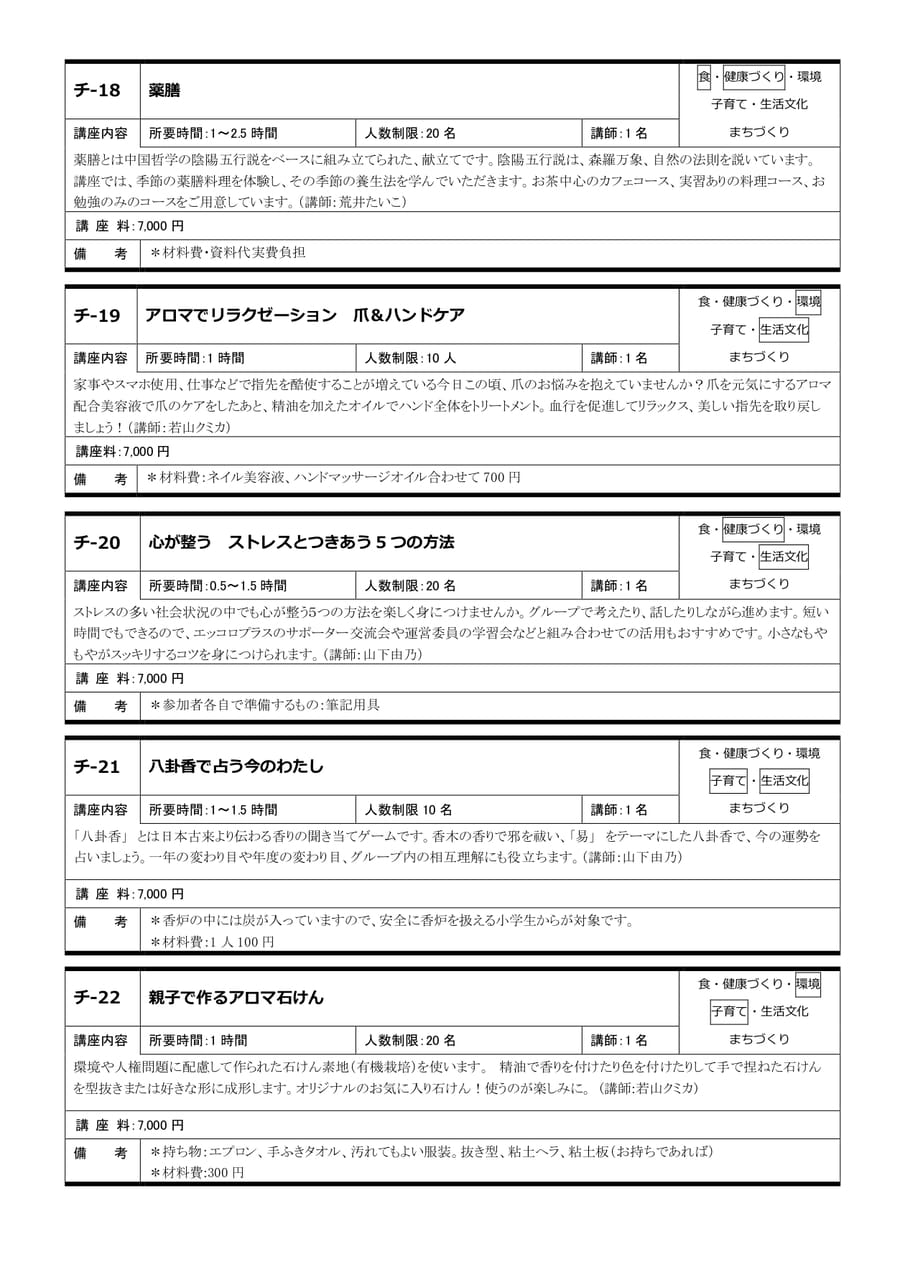 チ-18 薬膳 食・健康づくり・環境
子育て・生活文化
講座内容 所要時間：1～2.5 時間 人数制限：20 名 講師：1 名 まちづくり
薬膳とは中国哲学の陰陽五行説をベースに組み立てられた、献立てです。陰陽五行説は、森羅万象、自然の法則を説いています。
講座では、季節の薬膳料理を体験し、その季節の養生法を学んでいただきます。お茶中心のカフェコース、実習ありの料理コース、お
勉強のみのコースをご用意しています。（講師：荒井たいこ）
講 座 料：7,000 円
備　　考 ＊材料費・資料代実費負担
チ-19 アロマでリラクゼーション　爪＆ハンドケア 食・健康づくり・環境
子育て・生活文化
講座内容 所要時間：1 時間 人数制限：10 人 講師：1 名 まちづくり
家事やスマホ使用、仕事などで指先を酷使することが増えている今日この頃、爪のお悩みを抱えていませんか？爪を元気にするアロマ
配合美容液で爪のケアをしたあと、精油を加えたオイルでハンド全体をトリートメント。血行を促進してリラックス、美しい指先を取り戻し
ましょう！（講師：若山クミカ）
講座料：7,000 円
備　　考 ＊材料費：ネイル美容液、ハンドマッサージオイル合わせて 700 円
チ-20 心が整う　ストレスとつきあう 5 つの方法 食・健康づくり・環境
子育て・生活文化
講座内容 所要時間：0.5～1.5 時間 人数制限：20 名 講師：1 名 まちづくり
ストレスの多い社会状況の中でも心が整う5つの方法を楽しく身につけませんか。グループで考えたり、話したりしながら進めます。短い
時間でもできるので、エッコロプラスのサポーター交流会や運営委員の学習会などと組み合わせての活用もおすすめです。小さなもや
もやがスッキリするコツを身につけられます。（講師：山下由乃）
講 座 料：7,000 円
備　　考 ＊参加者各自で準備するもの：筆記用具
チ-21 八卦香で占う今のわたし 食・健康づくり・環境
子育て・生活文化
講座内容 所要時間：1～1.5 時間 人数制限 10 名 講師：1 名 まちづくり
「八卦香」 とは日本古来より伝わる香りの聞き当てゲームです。香木の香りで邪を祓い、「易」 をテーマにした八卦香で、今の運勢を
占いましょう。一年の変わり目や年度の変わり目、グループ内の相互理解にも役立ちます。（講師：山下由乃）
講 座 料：7,000 円
備　　考 ＊香炉の中には炭が入っていますので、安全に香炉を扱える小学生からが対象です。
＊材料費：1 人 100 円
チ-22 親子で作るアロマ石けん 食・健康づくり・環境
子育て・生活文化
講座内容 所要時間：1 時間 人数制限：20 名 講師：1 名 まちづくり
環境や人権問題に配慮して作られた石けん素地（有機栽培）を使います。　精油で香りを付けたり色を付けたりして手で捏ねた石けん
を型抜きまたは好きな形に成形します。オリジナルのお気に入り石けん！使うのが楽しみに。（講師:若山クミカ）
講 座 料：7,000 円
備　　考 ＊持ち物：エプロン、手ふきタオル、汚れてもよい服装。抜き型、粘土ヘラ、粘土板（お持ちであれば）
＊材料費:300 円